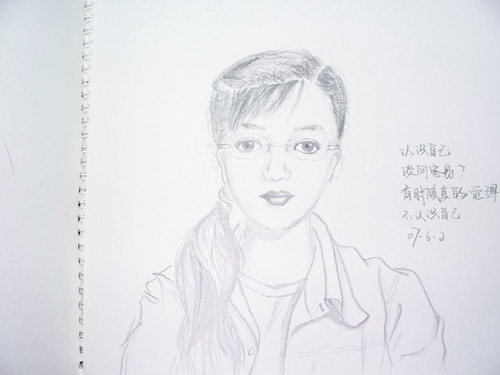 认识自己
谈何容易?
有时候真的觉得
不认识自己
07.6.2